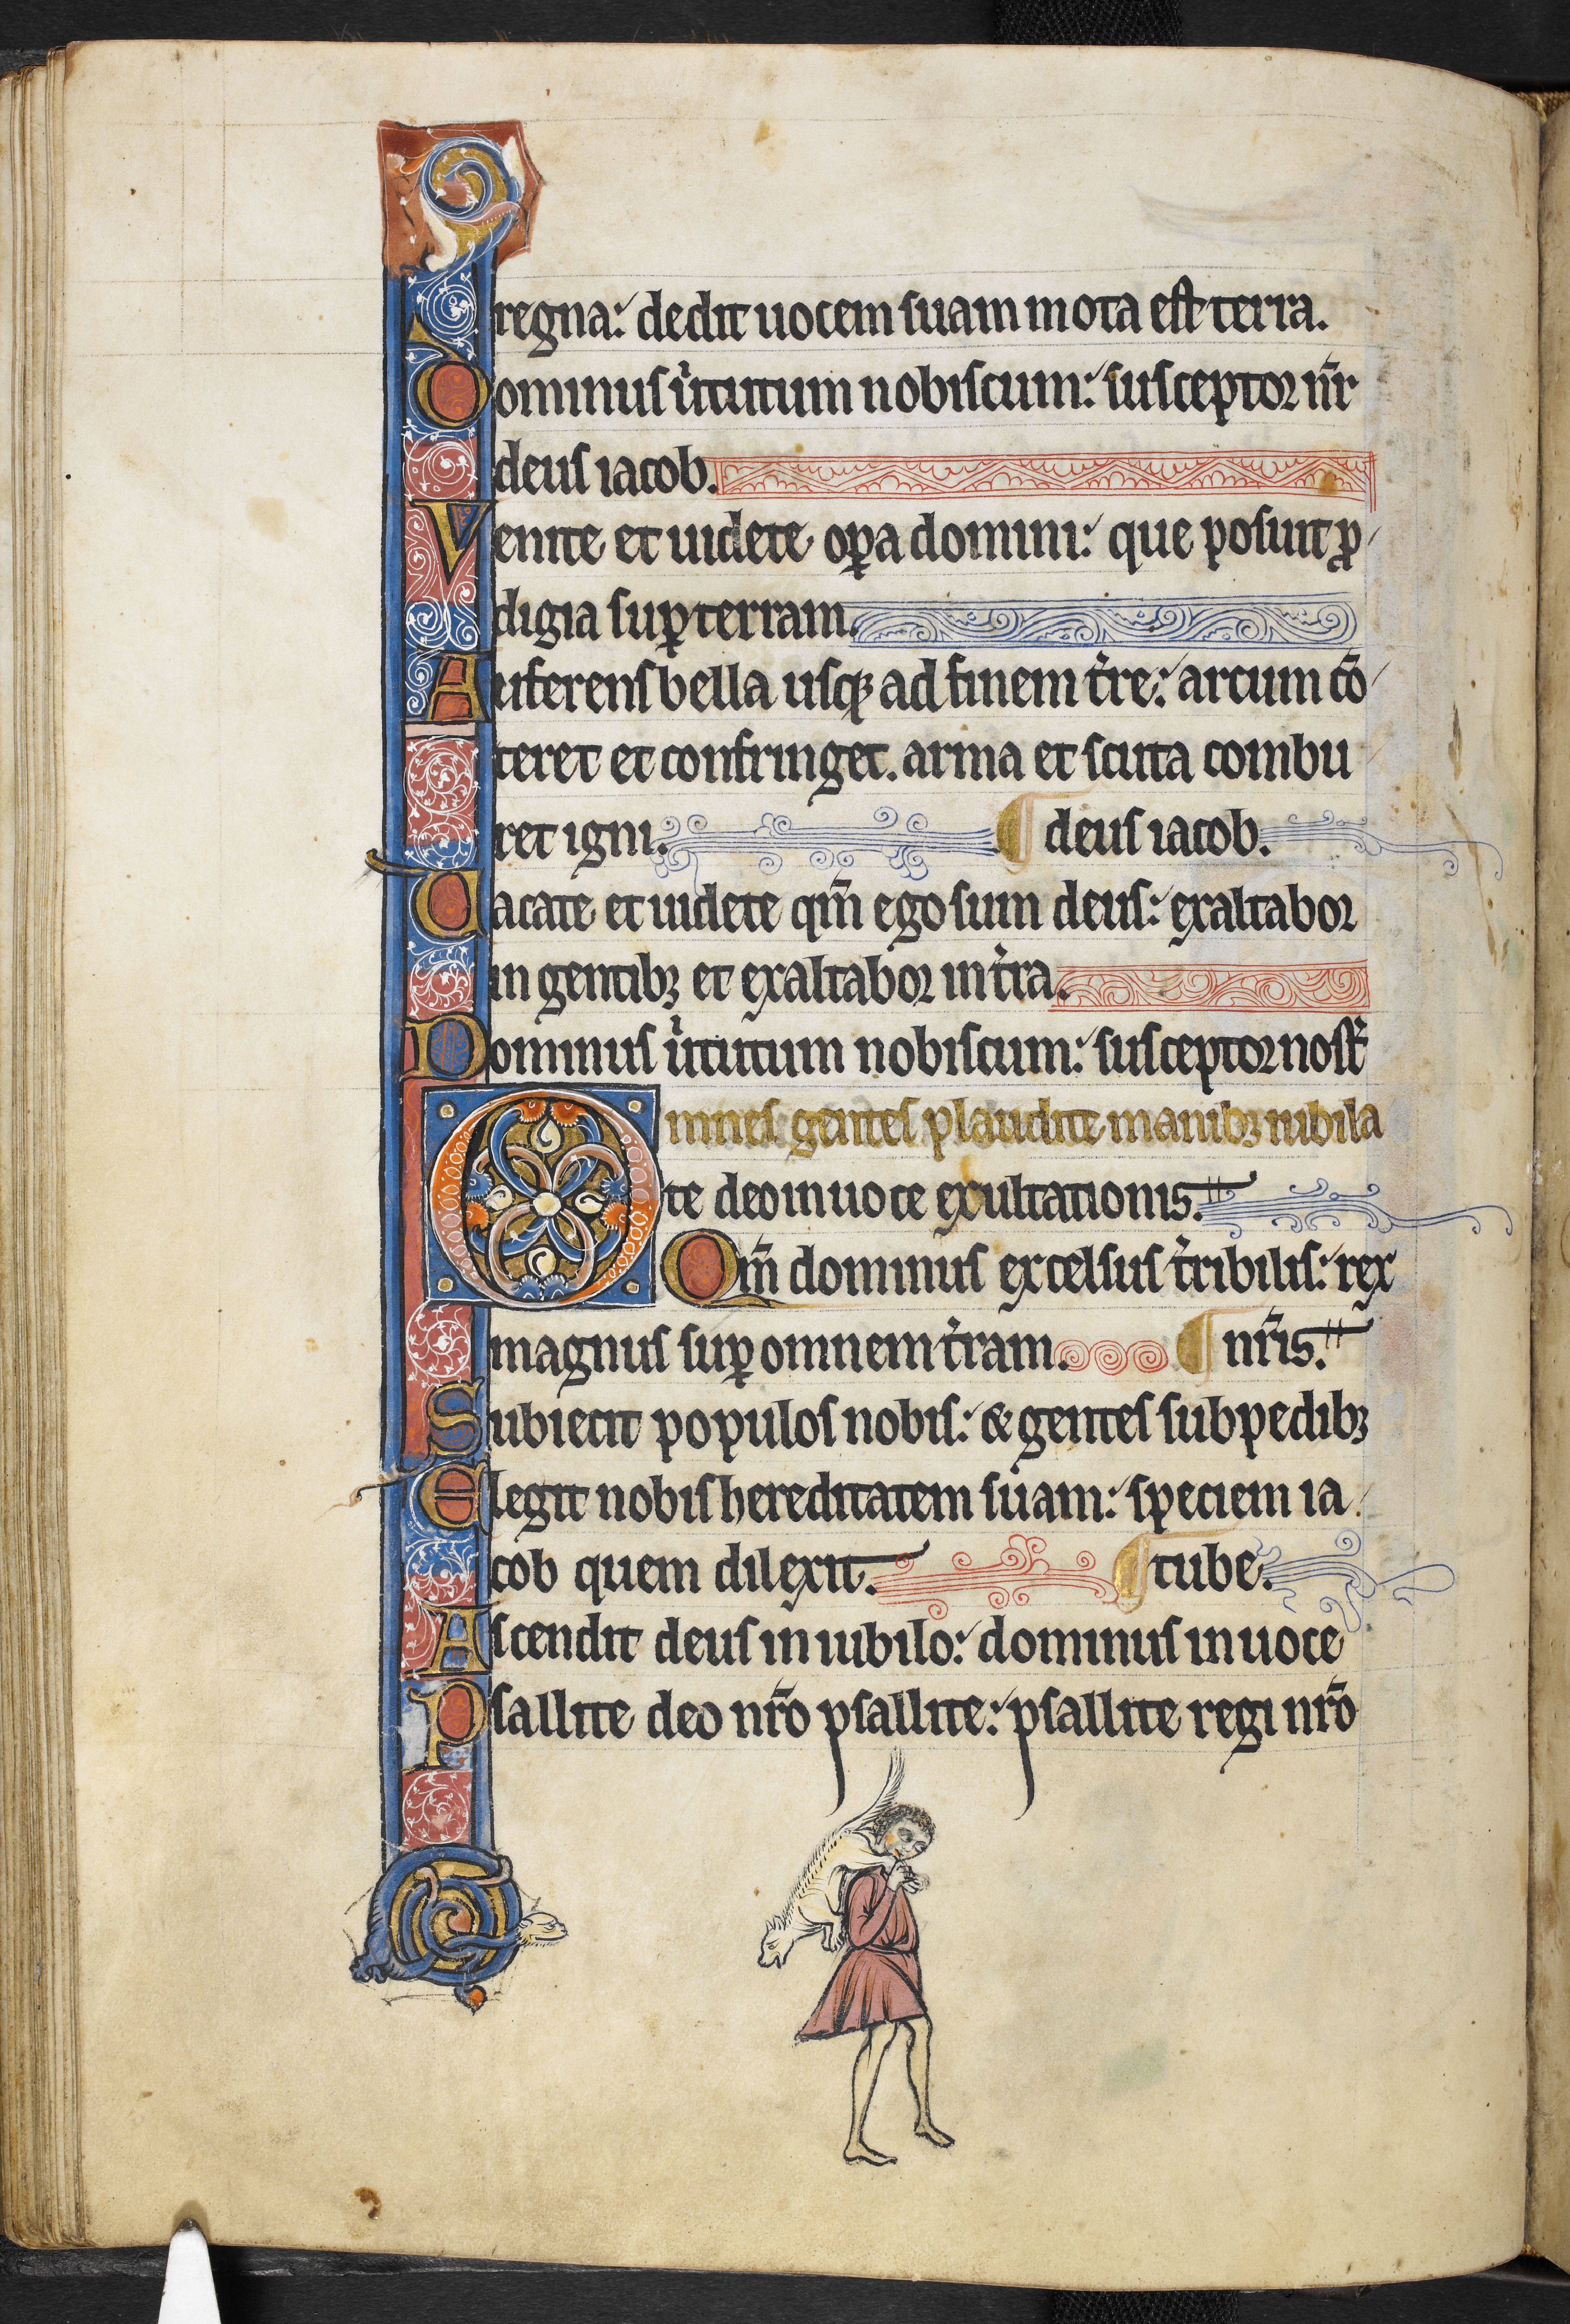 regna: dedit uocem suam mota est terra.
Dominus u̍tutum nobiscum: susceptor nr̄
deus iacob.
Venite et uidete op̱a domini: que posuit ꝓ
digia suꝑ terram.
Auferens bella usqꝫ ad finem t̍re: arcum cō
teret et confringet. arma et scuta combu
ret igni. ¶ deus iacob.
Uacate et uidete qm̄ ego sum deus: exaltabor
in gentibꝫ et exaltabor in t̍ra.
Dominus u̍tutum nobiscum: susceptor nost̍
Omnes gentes plaudite manibꝫ iubila
te deo in uoce exultationis.
Qm̄ dominus excelsus t̍ribilis: rex
magnus suꝑ omnem t̍ram. ¶ nr̄is.
Subiecit populos nobis: & gentes sub pedibꝫ
Elegit nobis hereditatem suam: speciem ia
cob quem dilexit. ¶ tube.
Ascendit deus in iubilo: dominus in uoce
Psallite deo nr̄o psallite: psallite regi nr̄o